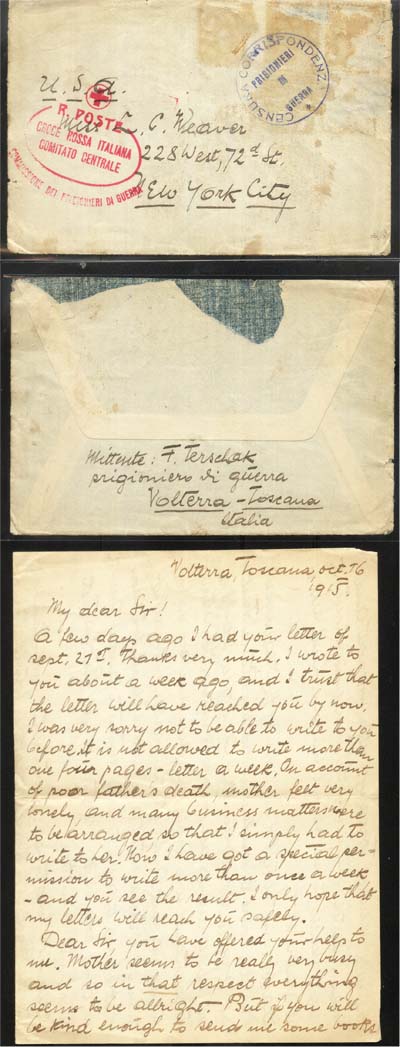 U. S. A.
R. POSTE
CROCE ROSSA ITALIANA
COMITATO CENTRALE
COMMISSIONE DEI PRIGIONIERI DI GUERRA
CENSURA CORRISPONDENZA
PRIGIONIERI
DI
GUERRA
C. Weaver
228 West, 72d St.
New York City
Mittente: F. Terschak
prigioniero di guerra
Volterra - Toscana
Italia
Volterra, Toscana, oct. 16
1915.
My dear Sir!
A few days ago I had your letter of
sept. 21st. Thanks very much. I wrote to
you about a week ago, and I trust that
the letter will have reached you by now.
I was very sorry not to be able to write to you
before, it is not allowed to write more than
one four pages - letter a week. On account
of poor father's death, mother felt very
lonely, and many business matters were
to be arranged, so that I simply had to
write to her. Now I have got a special per=
mission to write more than once a week
- and you see the result. I only hope that
my letters will reach you safely.
Dear Sir you have offered your help to
me. Mother seems to be really very busy
and so in that respect everything
seems to be allright. - But if you will
be kind enough to send me some books